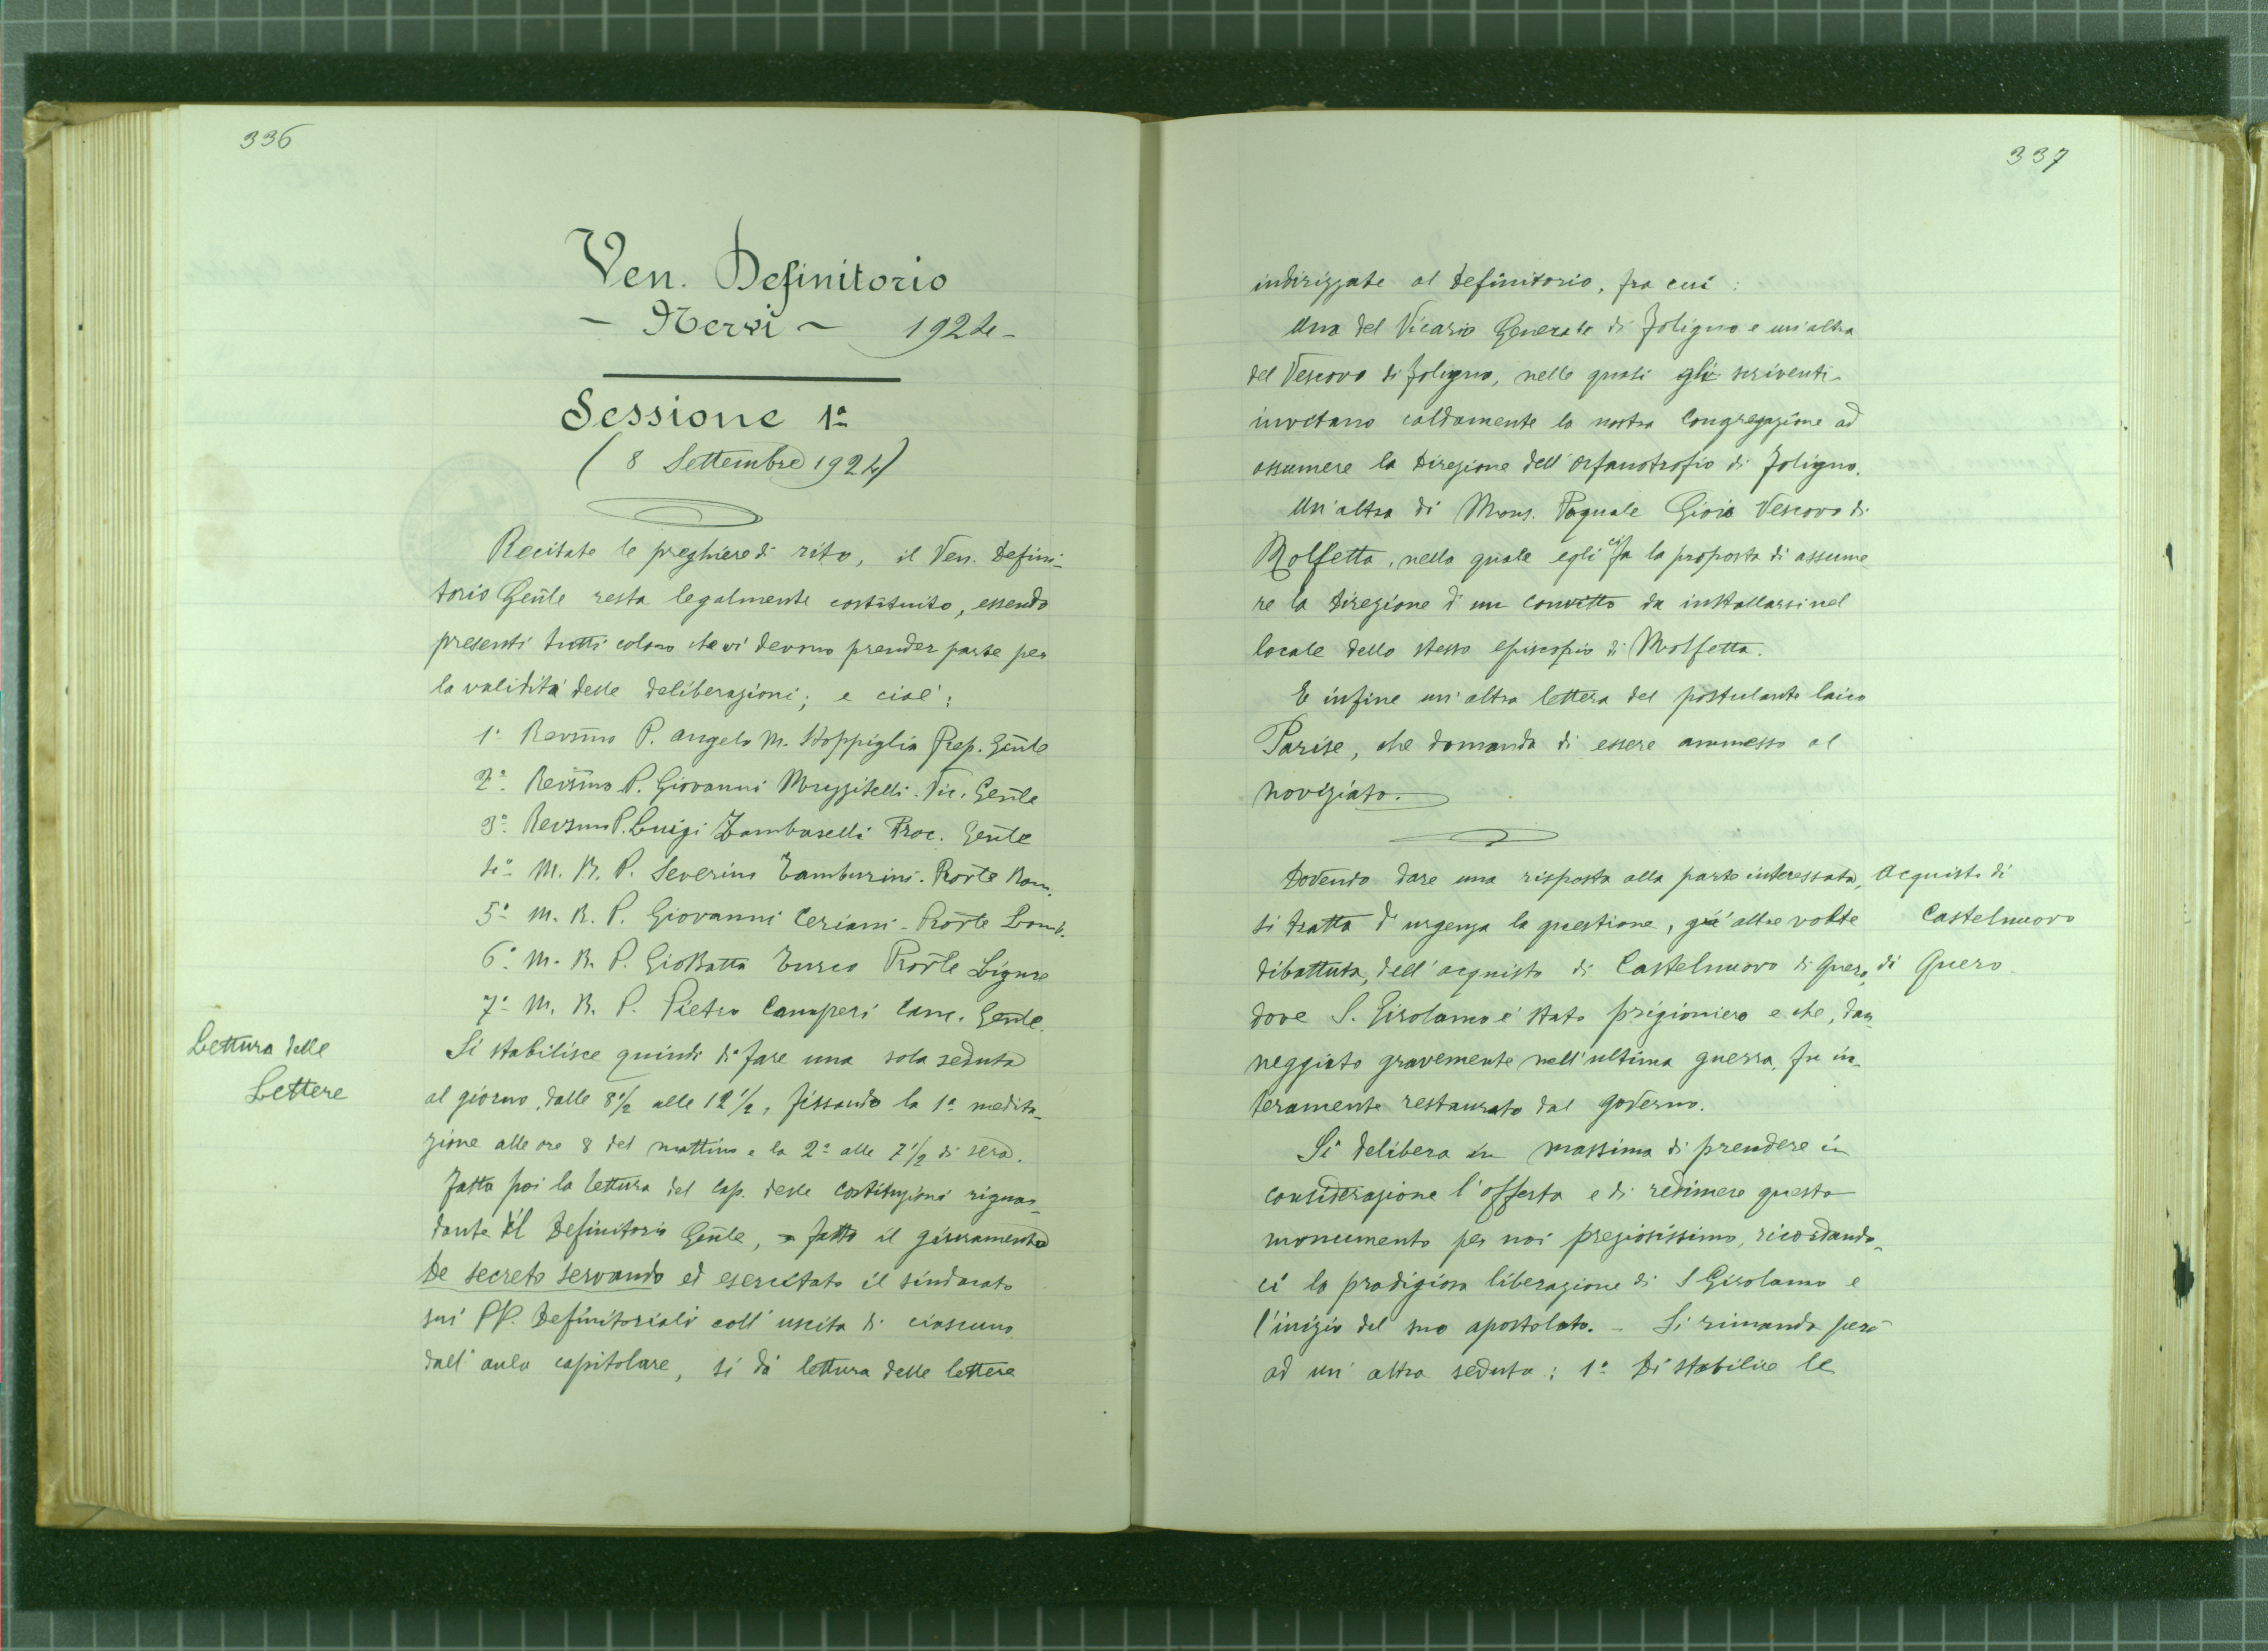 336
Ven. Definitorio
- Nervi - 1924 -
Sessione 1ª
( 8 Settembre 1924)
Recitate le preghiere di rito, il Ven. Defini-
torio Gen̄le resta legalmente costituito, essendo
presenti tutti coloro che vi devono prender parte per
la validità delle deliberazioni; e cioè:
1º Revr̄mo P. Angelo M. Stoppiglia Prep. Gen̄le
2º Revr̄mo P. Giovanni Muzzitelli. Vic. Gen̄le
3º Revr̄mo P. Luigi Zambarelli Proc. Gen̄le
4º M. R. P. Severino Tamburini. Prov̄le Rom.
5º M. R. P. Giovanni Ceriani - Prov̄le Lomb.
6º M. R. P. Gio Batta Turco Prov̄le Ligure
7º M. R. P. Pietro Camperi Canc. Gen̄le.
Lettura delle
Lettere
Si stabilisce quindi di fare una sola seduta
al giorno, dalle 8½ alle 12½, fissando la 1ª medita-
zione alle ore 8 del mattino e la 2ª alle 7½ di sera.
Fatta poi la lettura del Cap. delle Costituzioni riguar-
dante il Definitorio Gen̄le, fatto il giuramento
De secreto servando ed esercitato il sindacato
sui PP. Definitoriali coll'uscita di ciascuno
dall'aula capitolare, si dà lettura delle lettere
337
indirizzate al Definitorio, fra cui:
Una del Vicario Generale di Foligno e un'altra
del Vescovo di Foligno, nelle quali gli scriventi
invitano caldamente la nostra Congregazione ad
assumere la Direzione dell'Orfanotrofio di Foligno.
Un'altra di Mons. Pasquale Gioia Vescovo di
Molfetta, nella quale egli ci fa la proposta di assume-
re la Direzione d'un convitto da installarsi nel
locale dello stesso episcopio di Molfetta.
E infine un'altra lettera del postulante laico
Parise, che domanda di essere ammesso al
noviziato.
Dovendo dare una risposta alla parte interessata,
si tratta d'urgenza la questione, già altre volte
dibattuta, dell'acquisto di Castelnuovo di Quero,
dove S. Girolamo è stato prigioniero e che, dan-
neggiato gravemente nell'ultima guerra, fu in-
teramente restaurato dal governo.
Acquisto di
Castelnuovo
di Quero
Si delibera in massima di prendere in
considerazione l'offerta e di redimere questo
monumento per noi preziosissimo, ricordando-
ci la prodigiosa liberazione di S Girolamo e
l'inizio del suo apostolato. - Si rimanda però
ad un'altra seduta: 1º Di stabilire le